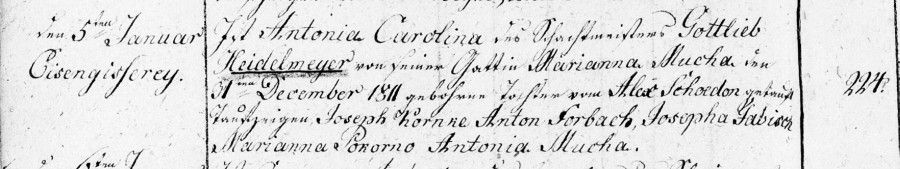 den 5ten Januar
Eisengisserey.
Ist Antonia Carolina des Schachtmeisters Gottlieb
Heidelmeyer von seiner Gattin Marianna Mucha den
31ten December 1811 gebohrne Tochter vom Alex Schoedon getauft
Taufzeigen, Joseph Kornke Anton Forbach, Josepha Gabisch
Marianna Pokorno Antonia Mucha.
224.